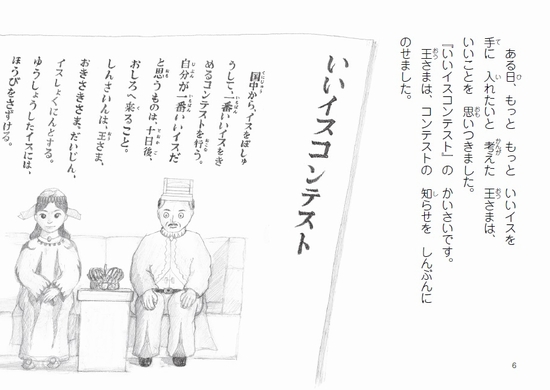 ある日、もっと もっと いいイスを
手に 入れたいと 考えた 王さまは、
いいことを 思いつきました。
『いいイスコンテスト』の かいさいです。
王さまは、コンテストの 知らせを しんぶんに
のせました。
いいイスコンテスト
国中から、イスをぼしゅ
うして、一番いいイスをき
めるコンテストを行う。
自分が一番いいイスだ
と思うものは、十日後、
おしろへ来ること。
しんさいんは、王さま、
おきさきさま、だいじん、
イスしょくにんとする。
ゆうしょうしたイスには、
ほうびをさずける。
6